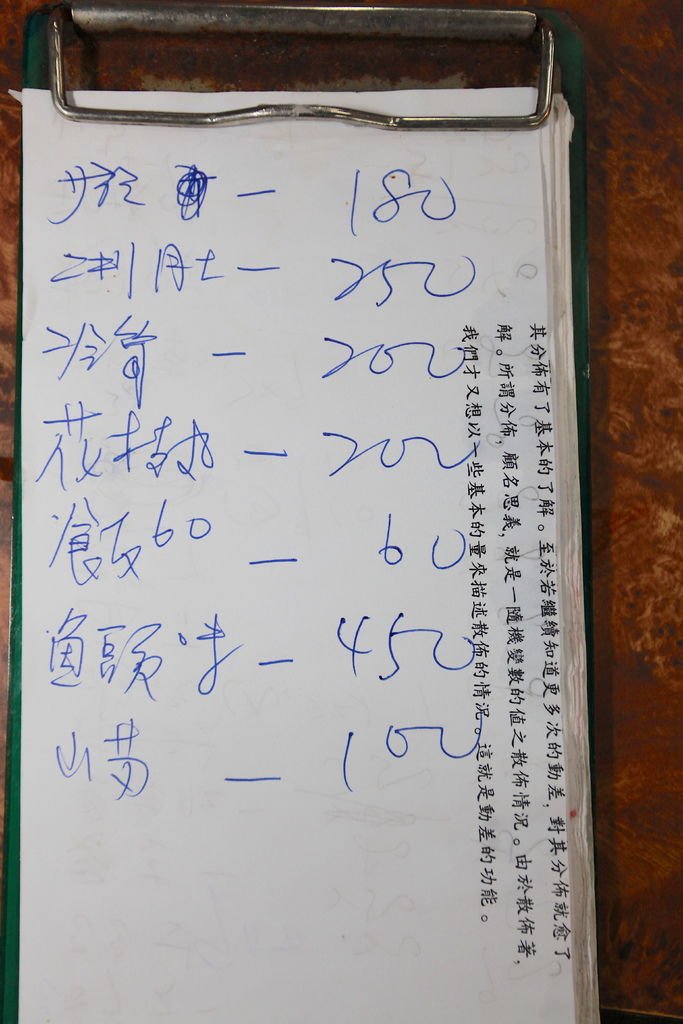 肚 — 250
冷筍 — 200
花枝 — 200
飯60 — 60
魚頭 — 450
山 — 100
其分佈有了基本的了解。至於若繼續知道更多次的動差,對其分佈就愈了
解。所謂分佈,顧名思義,就是一隨機變數的值之散佈情況。由於散佈著,
我們才又想以一些基本的量來描述散佈的情況。這就是動差的功能。